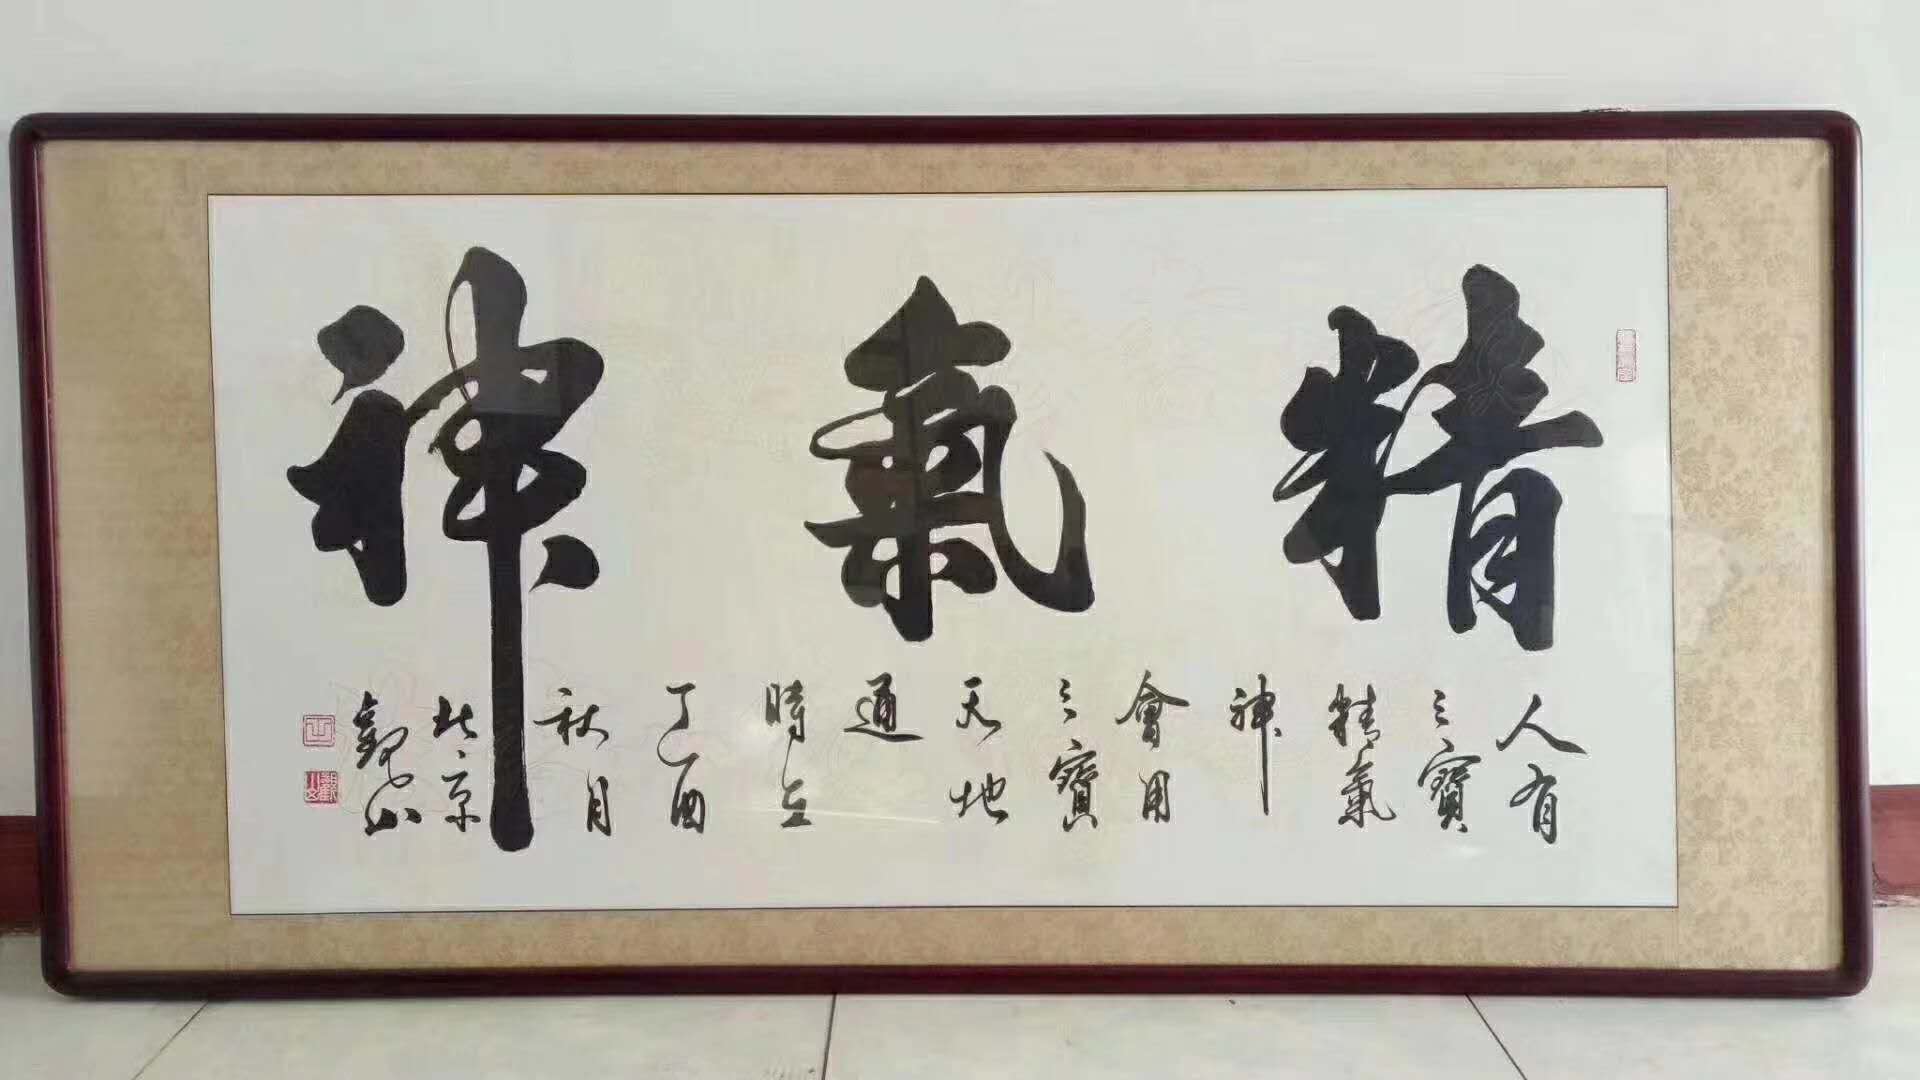 精氣神
人有
三寶
精氣
神
會用
三寶
天地
通
時在
丁酉
秋月
北京
觀山